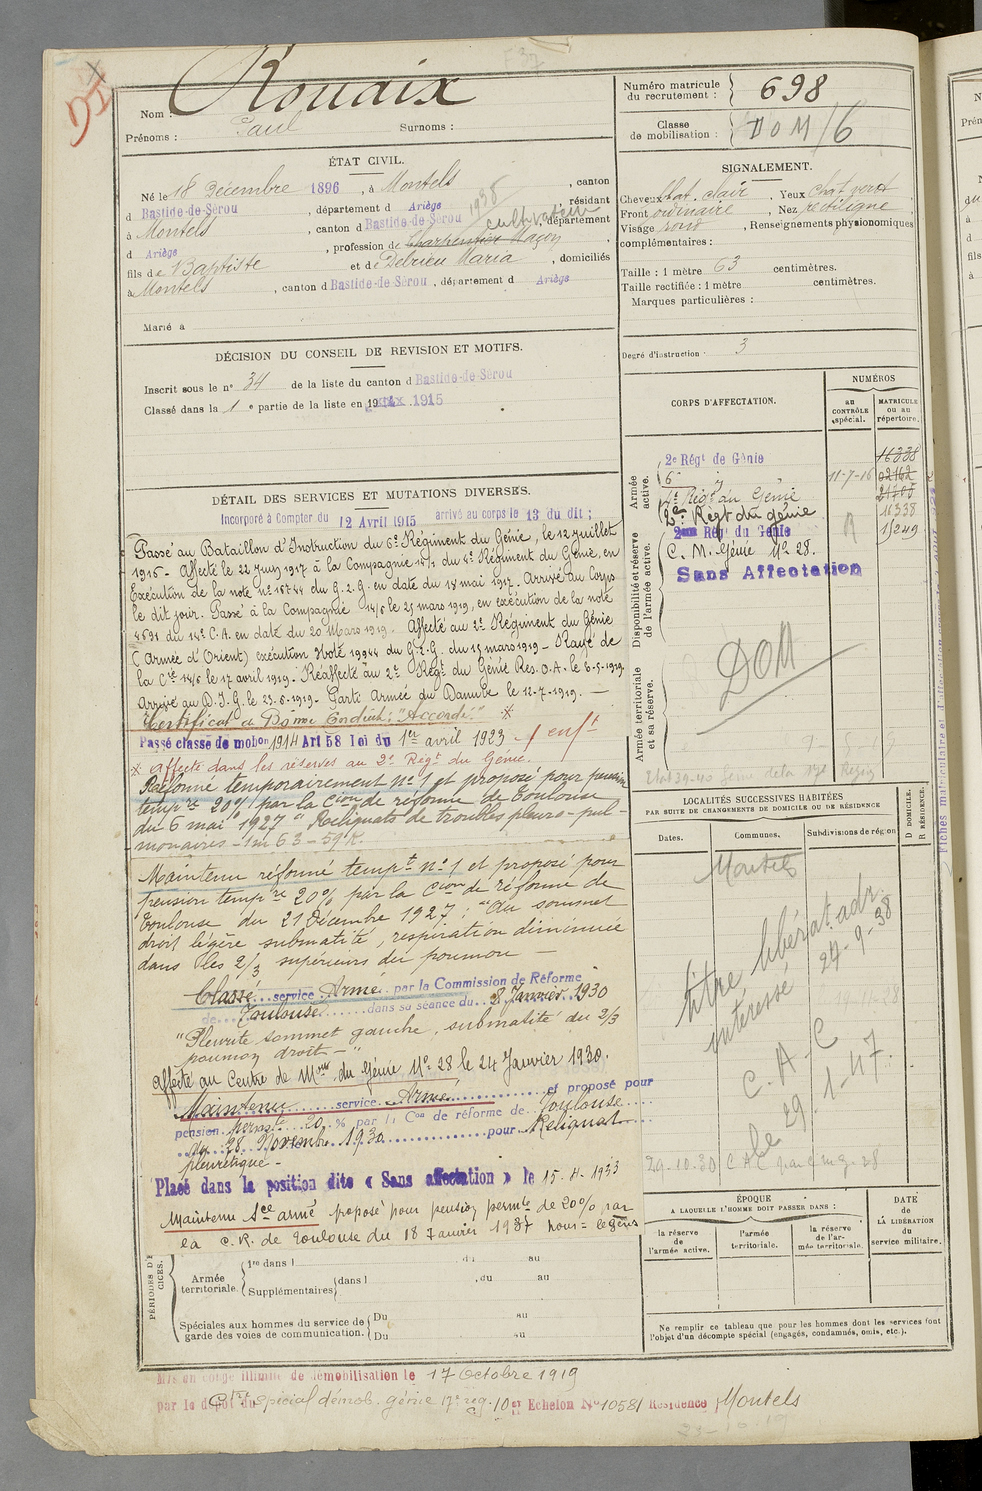 Nom : Rouaix
Prénoms : Paul Surnoms :
Numéro matricule du recrutement : 698
Classe de mobilisation : DOM/6
ÉTAT CIVIL.
Né le 18 Décembre 1896, à Montels, canton
d Bastide-de-Sérou, département d Ariège, résidant
à Montels, canton d Bastide-de-Sérou, département
1938 cultivateur
d Ariège, profession de charpentier Maçon
fils de Baptiste et de Delrieu Maria, domiciliés
à Montels, canton d Bastide-de-Sérou, département d Ariège
Marié à
SIGNALEMENT.
Cheveux chat. clair, Yeux chat. vert
Front ordinaire, Nez rectiligne,
Visage rond, Renseignements physionomiques
complémentaires :
Taille : 1 mètre 63 centimètres.
Taille rectifiée : 1 mètre centimètres.
Marques particulières :
Degré d'instruction : 3
DÉCISION DU CONSEIL DE REVISION ET MOTIFS.
Inscrit sous le n° 34 de la liste du canton d Bastide-de-Sérou
Classé dans la 1e partie de la liste en 1915
DÉTAIL DES SERVICES ET MUTATIONS DIVERSES.
Incorporé à Compter du 12 Avril 1915 arrivé au corps le 13 du dit ;
Passé au Bataillon d'Instruction du 6e Régiment du Génie, le 12 juillet
1916 - Affecté le 22 juin 1917 à la Compagnie 14/2 du 4e Régiment du Génie, en
Exécution de la note n° 16744 du G.Q.G. en date du 18 mai 1917. Arrivé au Corps
le dit jour. Passé à la Compagnie 14/6 le 25 mars 1919, en exécution de la note
4691 du 14e C.A. en date du 20 Mars 1919. Affecté au 2e Régiment du Génie
(Armée d'Orient) exécution Note 19944 du G.Q.G. du 15 mars 1919 - Rayé de
la Cie 14/6 le 17 avril 1919 - Réaffecté au 2e Régt du Génie Res. O.A. le 6-5-1919
Arrivé au D.I.G. le 23-6-1919 - Parti Armée du Danube le 12-7-1919. -
Certificat de Bonne Conduite : "Accordé." *
Passé classe de mobon 1914 Art 58 loi du 1er avril 1923 - 1 enft
* Affecté dans les réserves au 2e Régt du Génie.
Réformé temporairement n° 1 et proposé pour pension
tempre 20% par la Cion de réforme de Toulouse
du 6 mai 1927 "Reliquats de troubles pleuro-pul-
monaires - 1m 63 - 59 K.
Maintenu réformé tempt n° 1 et proposé pour
pension tempre 20% par la Cion de réforme de
Toulouse du 21 Décembre 1927 : "Au sommet
droit légère submatité, respiration diminuée
dans les 2/3 supérieurs du poumon -
Classé service Armé par la Commission de Réforme
de Toulouse dans sa séance du 8 Janvier 1930
"Pleurite sommet gauche, submatité du 2/3
poumon droit - "
Affecté au Centre de Mon du Génie N° 28 le 24 Janvier 1930.
Maintenu service Armé et proposé pour
pension permte 20 % par la Con de réforme de Toulouse
du 28 Novembre 1930 pour Reliquat
pleurétique -
Placé dans la position dite « Sans affectation » le 15-4-1933
Maintenu Sce armé proposé pour pension permte de 20% par
la C.R. de Toulouse du 18 Janvier 1937
CORPS D'AFFECTATION.
NUMÉROS
au CONTRÔLE spécial.
MATRICULE ou au répertoire.
Armée active.
2e Régt de Génie 16338
6e 11-7-16 02162
4e Régt du Génie 21705
2e Régt du génie 16338
Disponibilité et réserve de l'armée active.
2me Régt du Génie R 15249
C. M. Génie N° 28.
Sans Affectation
Armée territoriale et sa réserve.
DOM
LOCALITÉS SUCCESSIVES HABITÉES
PAR SUITE DE CHANGEMENTS DE DOMICILE OU DE RÉSIDENCE
Dates. Communes. Subdivisions de région D DOMICILE. R RÉSIDENCE.
Montels
titre libérat adr.
intéressé 24-9-38
C. A. C
le 29.1-47.
29-10-30 C A C
ÉPOQUE
A LAQUELLE L'HOMME DOIT PASSER DANS :
la réserve de l'armée active.
l'armée territoriale.
la réserve de l'armée territoriale.
DATE de LA LIBÉRATION du service militaire.
Ne remplir ce tableau que pour les hommes dont les services font
l'objet d'un décompte spécial (engagés, condamnés, omis, etc.).
Armée territoriale. 1re dans l du au
Supplémentaires dans l, du au
Spéciales aux hommes du service de garde des voies de communication. Du au
Du au
Mis en congé illimité de démobilisation le 17 Octobre 1919
par le dépôt du Ctre spécial démob. génie 17e rég. 10er Echelon N° 10581 Résidence Montels